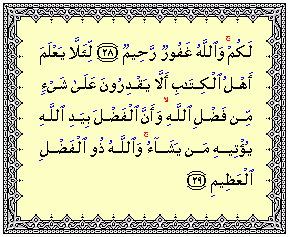 لَكُمْ ۚ وَٱللَّهُ غَفُورٌ رَّحِيمٌ ﴿٢٨﴾ لِّئَلَّا يَعْلَمَ
أَهْلُ ٱلْكِتَـٰبِ أَلَّا يَقْدِرُونَ عَلَىٰ شَىْءٍ
مِّن فَضْلِ ٱللَّهِ ۙ وَأَنَّ ٱلْفَضْلَ بِيَدِ ٱللَّهِ
يُؤْتِيهِ مَن يَشَآءُ ۚ وَٱللَّهُ ذُو ٱلْفَضْلِ
ٱلْعَظِيمِ ﴿٢٩﴾